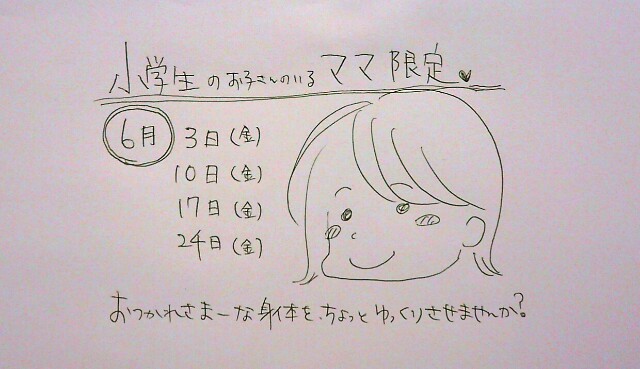 小学生のお子さんのいるママ限定♥
6月 3日(金)
10日(金)
17日(金)
24日(金)
おつかれさまーな身体を、ちょっとゆっくりさせませんか?